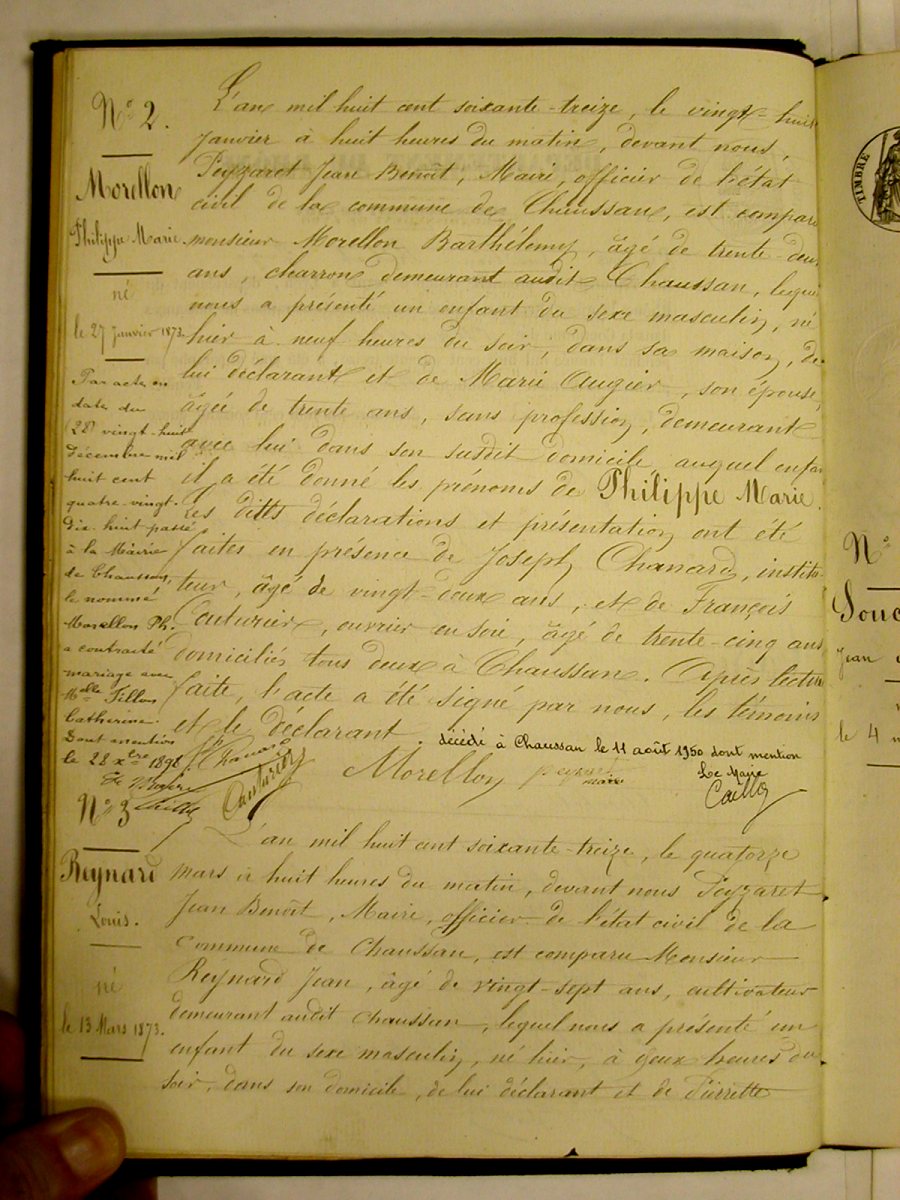 N° 2.
Morellon
Philippe Marie
né
le 27 Janvier 1873.
Par acte en
date du
(28) vingt-huit
décembre mil
huit cent
quatre-vingt-
dix-huit passé
à la Mairie
de Chaussan,
le nommé
Morellon Ph.
a contracté
mariage avec
Melle Fillon
Catherine.
Dont mention
le 28 Xbre 1898
L'an mil huit cent soixante-treize, le vingt-huit
Janvier à huit heures du matin, devant nous,
Peyzaret Jean Benoît, Maire, officier de l'état
civil de la commune de Chaussan, est comparu
monsieur Morellon Barthélemy, âgé de trente-deux
ans, charron demeurant audit Chaussan, lequel
nous a présenté un enfant du sexe masculin, né
hier à neuf heures du soir, dans sa maison, de
lui déclarant et de Marie Augier, son épouse,
âgée de trente ans, sans profession, demeurant
avec lui dans son susdit domicile, auquel enfan
il a été donné les prénoms de Philippe Marie.
Les dittes déclarations et présentation ont été
faites en présence de Joseph Chanard, institu-
teur, âgé de vingt-deux ans, et de François
Couturier, ouvrier en soie, âgé de trente-cinq ans
domiciliés tous deux à Chaussan. Après lecture
faite, l'acte a été signé par nous, les témoins
et le déclarant.
décédé à Chaussan le 11 août 1950 dont mention
Le Maire
Chanard
Couturier
Morellon
maire
N° 3
Reynard
Louis.
né
le 13 Mars 1873.
L'an mil huit cent soixante-treize, le quatorze
mars à huit heures du matin, devant nous Peyzaret
Jean Benoît, Maire, officier de l'état civil de la
commune de Chaussan, est comparu Monsieur
Reynard Jean, âgé de vingt-sept ans, cultivateur
demeurant audit Chaussan, lequel nous a présenté un
enfant du sexe masculin, né hier, à deux heures du
soir, dans son domicile, de lui déclarant et de Pierrette
TIMBRE
N°
Souc
Jean
le 4